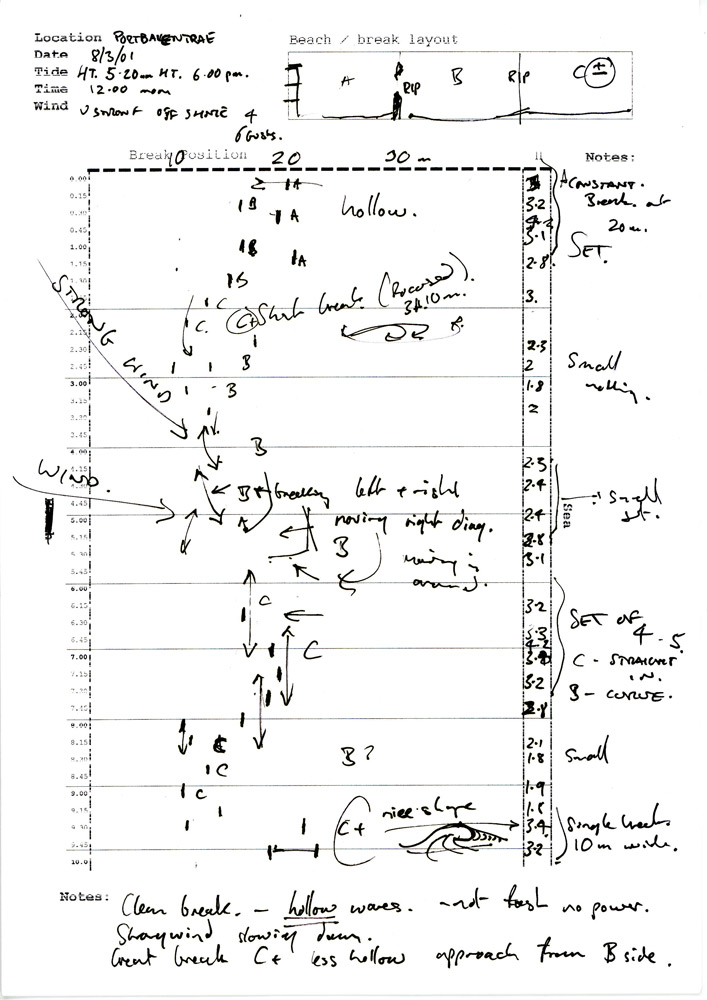 Location PORTBALLENTRAE
Beach / break layout
Date 8/3/01
Tide HT. 5.20am HT. 6.00 pm.
Time 12.00 noon
Wind V STRONG OFF SHORE 4
6 GUSTS.
A RIP B RIP C ±
Break Position
10 20 30 m
H
Notes:
0.00
0.15
0.30
0.45
1.00
1.15
1.30
2.30
2.45
3.00
3.15
3.30
3.45
4.00
4.15
4.45
5.00
5.15
5.30
5.45
6.00
6.15
6.30
6.45
7.00
7.15
7.30
7.45
8.00
8.15
8.30
8.45
9.00
9.15
9.30
9.45
10.0
A
B
A
hollow.
B
A
B
C
C. C+ Short break. (Focused).
3A.10m.
B
B
B
STRONG WIND
WIND.
B + breaking left + right
A moving right diag.
B
moving in
around.
C
C
C
C
B?
C
C+ nice shape
3.2
3.1
2.8
3.
2.3
2
1.8
2
2.3
2.4
2.4
2.8
3.1
3.2
3.2
2.1
1.8
1.9
1.8
3.4
3.2
Sea
A CONSTANT.
Break at
20m.
SET.
Small
nothing.
Small
set.
SET OF
4-5.
C - STRAIGHT
IN.
B - CURVE.
Small
Single breaks
10m wide.
Notes:
Clean break. - hollow waves. - not fast no power.
Strong wind slowing down.
Great break C+ less hollow approach from B side.